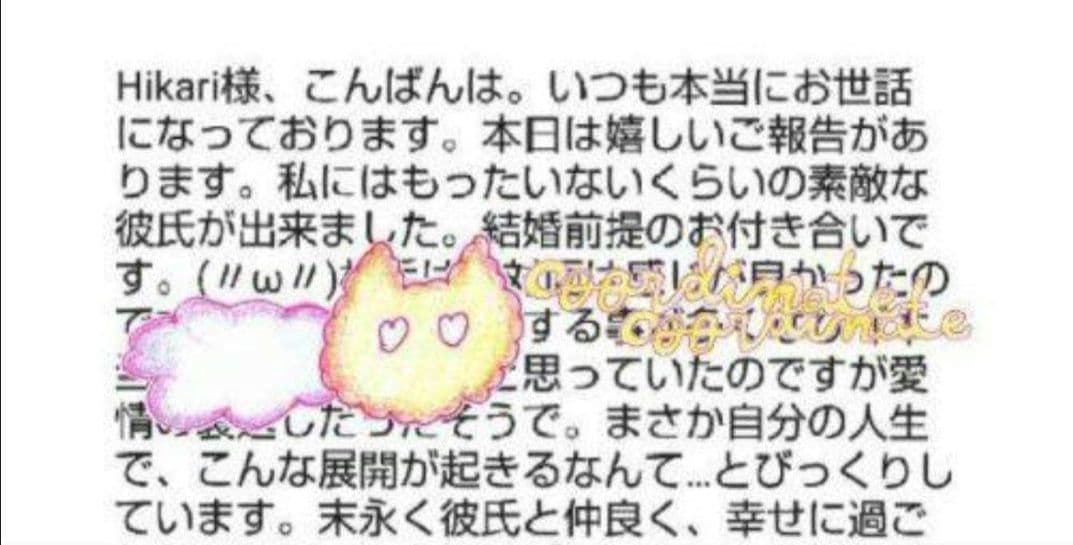 Hikari様、こんばんは。いつも本当にお世話
になっております。本日は嬉しいご報告があ
ります。私にはもったいないくらいの素敵な
彼氏が出来ました。結婚前提のお付き合いで
す。(〃ω〃)
感じが良かったの
coordinate
する
coordinate
思っていたのですが愛
情の裏返しだったそうで。まさか自分の人生
で、こんな展開が起きるなんて…とびっくりし
ています。末永く彼氏と仲良く、幸せに過ご